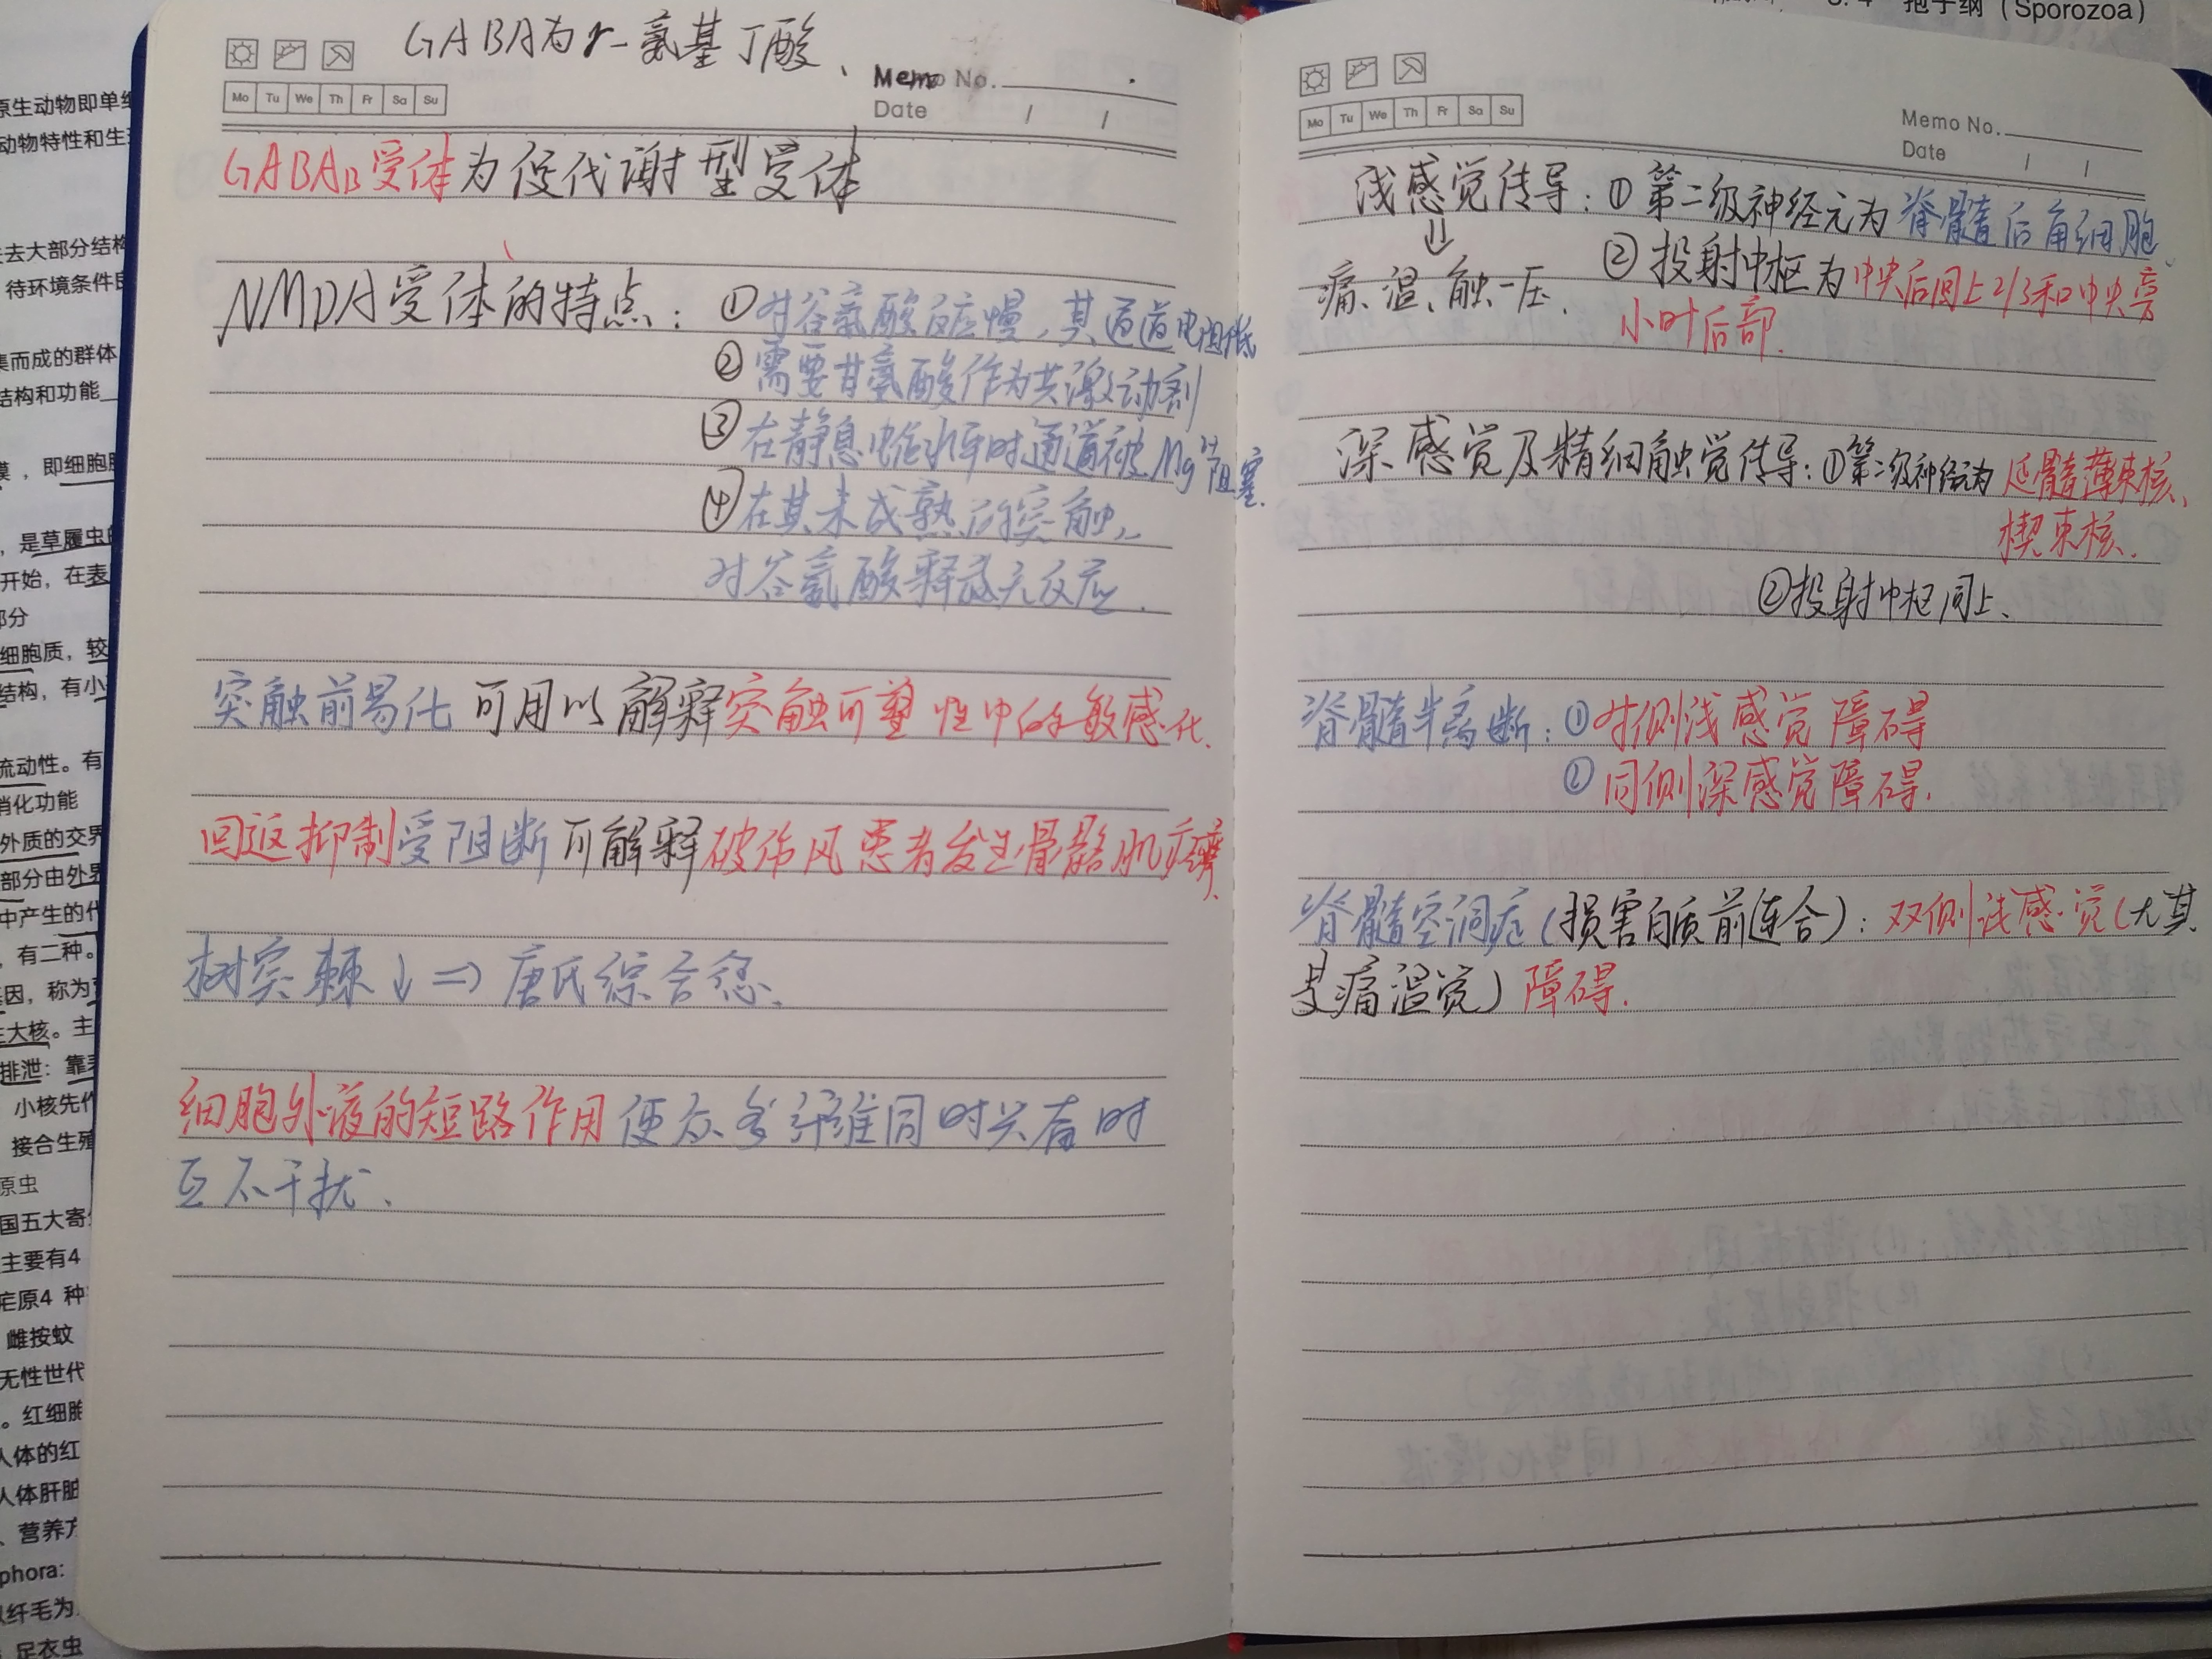 GABA为γ-氨基丁酸、
Memo No.
Mo Tu We Th Fr Sa Su
Date / /
GABAB受体为促代谢型受体
NMDA受体的特点：①对谷氨酸反应慢，其通道电阻低
②需要甘氨酸作为共激动剂
③在静息电位水平时通道被Mg²⁺阻塞.
④在其未成熟的突触,
对谷氨酸释放无反应.
突触前易化可用以解释突触可塑性中的敏感化.
回返抑制受阻断可解释破伤风患者发生骨骼肌痉挛.
树突棘↓⇒唐氏综合征、
细胞外液的短路作用使众多纤维同时兴奋时
互不干扰、
Memo No.
Mo Tu We Th Fr Sa Su
Date / /
浅感觉传导：①第二级神经元为脊髓后角细胞、
⇓
痛、温、触-压.
②投射中枢为中央后回上2/3和中央旁
小叶后部.
深感觉及精细触觉传导：①第二级神经元为延髓薄束核、
楔束核.
②投射中枢同上、
脊髓半离断：①对侧浅感觉障碍
②同侧深感觉障碍.
脊髓空洞症(损害白质前连合)：双侧浅感觉(尤其
是痛温觉)障碍.
孢子纲（Sporozoa）
原生动物即单
动物特性和生
去大部分结构
待环境条件
集而成的群体
结构和功能
，即细胞
，是草履虫
开始，在表
部分
细胞质，较
结构，有小
流动性。有
消化功能
外质的交界
部分由外界
中产生的代
，有二种。
基因，称为
主大核。主
排泄：靠
小核先作
接合生殖
原虫
国五大寄
主要有4
疟原4 种
雌按蚊
无性世代
。红细胞
人体的红
人体肝脏
、营养方
phora:
以纤毛为
足衣虫